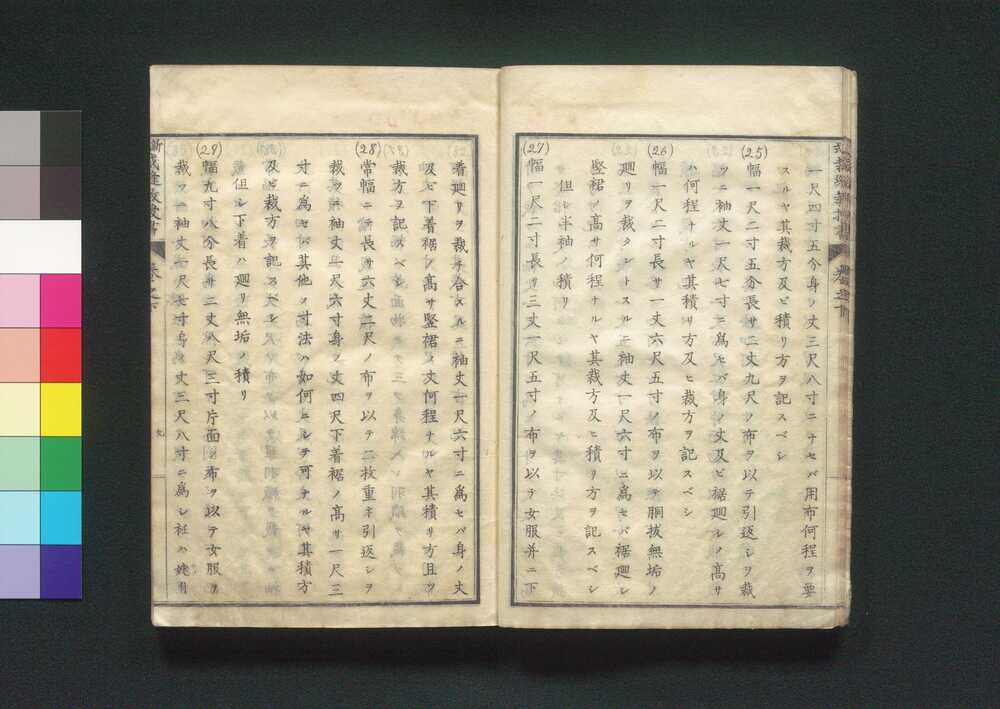 一尺四寸五分身ノ丈三尺八寸ニナセバ用布何程ヲ要
スルヤ其裁方及ビ積リ方ヲ記スベシ
(25)
幅一尺二寸五分長サ二丈九尺ノ布ヲ以テ引返シヲ裁
ツニ袖丈一尺七寸ニ爲セバ身ノ丈及ビ裾廻ルノ高サ
ハ何程ナルヤ其積リ方及ヒ裁方ヲ記スベシ
(26)
幅一尺二寸長サ一丈六尺五寸ノ布ヲ以テ胴拔無垢ノ
廻リヲ裁タントスルニ袖丈一尺六寸ニ爲セバ裾廻シ
竪褄ノ高サ何程ナルヤ其裁方及ヒ積リ方ヲ記スベシ
但シ半袖ノ積リ
(27)
幅一尺二寸長サ三丈一尺五寸ノ布ヲ以テ女服并ニ下
着廻リヲ裁チ合スルニ袖丈一尺六寸ニ爲セバ身ノ丈
及ヒ下着裾ノ高サ竪褄ノ丈何程ナルヤ其積リ方且ツ
裁方ヲ記スベシ
(28)
常幅ニテ長サ六丈二尺ノ布ヲ以テ二枚重ネ引返シヲ
裁ツニ袖丈一尺六寸身ノ丈四尺下着裾ノ高サ一尺三
寸ニ爲セバ其他ノ寸法ハ如何ニシテ可ナルヤ其積方
及ビ裁方ヲ記スベシ
但シ下着ハ廻リ無垢ノ積リ
(29)
幅九寸八分長サ二丈八尺三寸片面ノ布ヲ以テ女服ヲ
裁ツニ袖丈一尺五寸身ノ丈三尺八寸ニ爲シ衽ハ
九